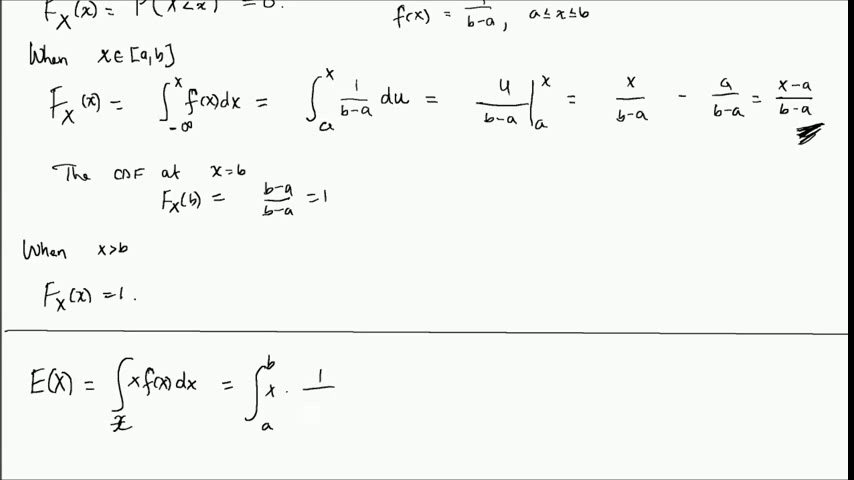 F_X(x) = P(X<x) = 0.
f(x) = 1/(b-a), a≤x≤b
When x∈[a,b]
F_X(x) = ∫_{-∞}^{x} f(x)dx = ∫_{a}^{x} 1/(b-a) du = u/(b-a) |_{a}^{x} = x/(b-a) - a/(b-a) = (x-a)/(b-a)
The CDF at x=b
F_X(b) = (b-a)/(b-a) = 1
When x>b
F_X(x) = 1.
E(X) = ∫_{x} x f(x) dx = ∫_{a}^{b} x · 1